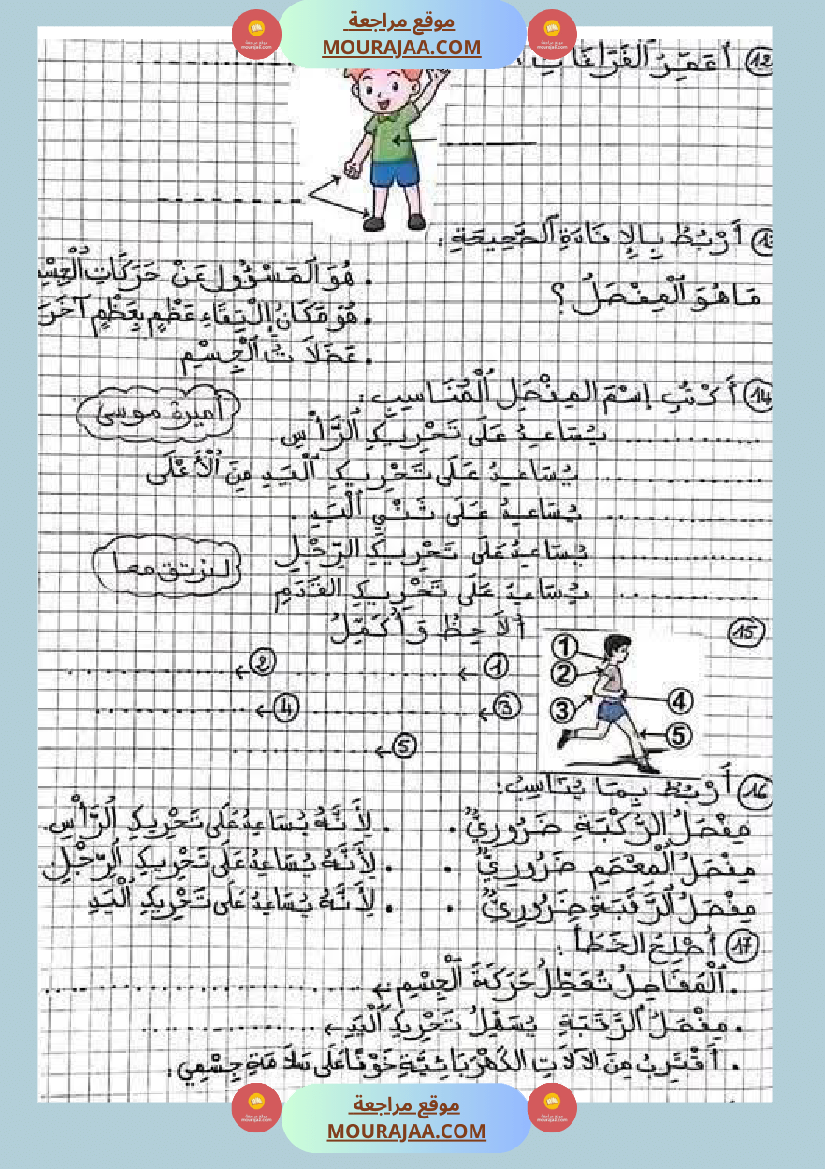 موقع مراجعة
MOURAJAA.COM
12 أَعَمِّرُ الْفَرَاغَاتِ
أَرْبُطُ بِالإِفَادَةِ الصَّحِيحَةِ :
مَا هُوَ الْمِفْصَلُ ؟
. هُوَ الْمَسْؤُولُ عَنْ حَرَكَاتِ الْجِسْ
. هُوَ مَكَانُ إِلْتِقَاءِ عَظْمٍ بِعَظْمٍ آخَرَ
. عَضَلَاتُ الْجِسْمِ
14 أَكْتُبُ إِسْمَ المِفْصَلِ الْمُنَاسِبِ :
أميرة موسى
............. يُسَاعِدُ عَلَى تَحْرِيكِ الرَّأْسِ.
............. يُسَاعِدُ عَلَى تَحْرِيكِ الْيَدِ مِنَ الْأَعْلَى
............. يُسَاعِدُ عَلَى ثَنْيِ الْيَدِ .
............. يُسَاعِدُ عَلَى تَحْرِيكِ الرِّجْلِ
لنرتق معا
............. يُسَاعِدُ عَلَى تَحْرِيكِ القَدَمِ
15 أُلَاحِظُ وَأُكَمِّلُ
1 ← ............. 2 ← .............
3 ← ............. 4 ← .............
5 ← .............
1
2
3
4
5
16 أَرْبُطُ بِمَا يُنَاسِبُ :
مِفْصَلُ الرُّكْبَةِ ضَرُورِيٌّ . . لِأَنَّهُ يُسَاعِدُ عَلَى تَحْرِيكِ الرَّأْسِ.
مِفْصَلُ الْمِعْصَمِ ضَرُورِيٌّ . . لِأَنَّهُ يُسَاعِدُ عَلَى تَحْرِيكِ الرِّجْلِ
مِفْصَلُ الرَّقَبَةِ ضَرُورِيٌّ . . لِأَنَّهُ يُسَاعِدُ عَلَى تَحْرِيكِ الْيَدِ
17 أُصْلِحُ الخَطَأَ :
. الْمَفَاصِلُ تُعَطِّلُ حَرَكَةَ الْجِسْمِ ← .............
. مِفْصَلُ الرَّقَبَةِ يُسَهِّلُ تَحْرِيكَ الْيَدِ ← .............
. أَقْتَرِبُ مِنَ الآلَاتِ الكَهْرَبَائِيَّةِ خَوْفًا عَلَى سَلَامَةِ جِسْمِي :
موقع مراجعة
MOURAJAA.COM